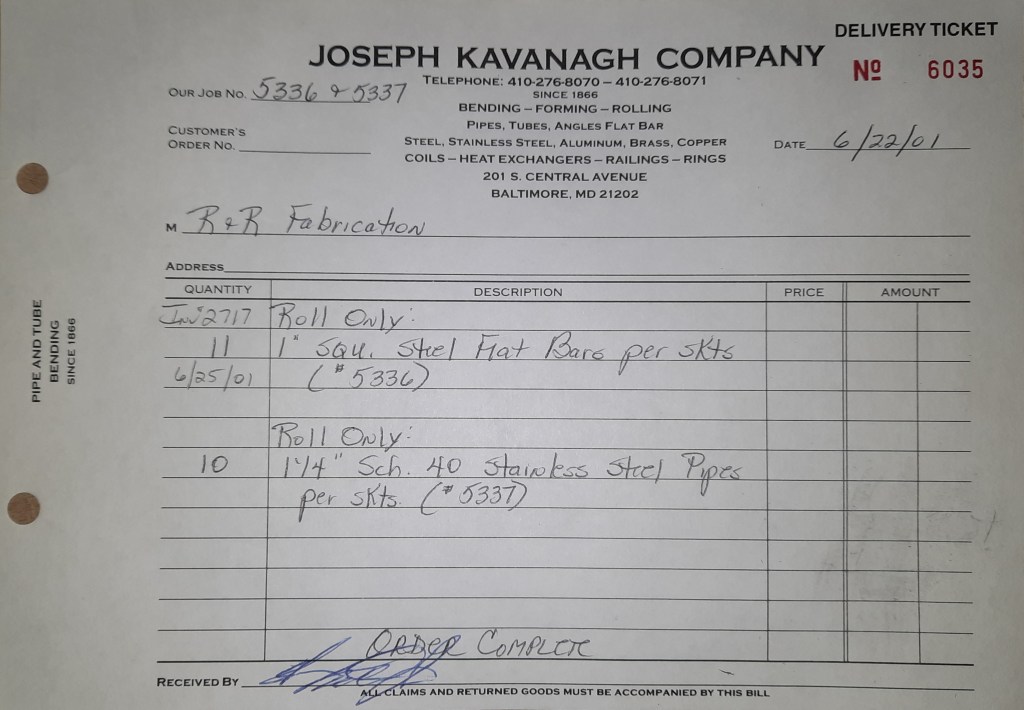 DELIVERY TICKET
JOSEPH KAVANAGH COMPANY
Nº 6035
TELEPHONE: 410-276-8070 – 410-276-8071
SINCE 1866
OUR JOB NO. 5336 & 5337
BENDING – FORMING – ROLLING
PIPES, TUBES, ANGLES FLAT BAR
CUSTOMER'S
ORDER NO.
STEEL, STAINLESS STEEL, ALUMINUM, BRASS, COPPER
DATE 6/22/01
COILS – HEAT EXCHANGERS – RAILINGS – RINGS
201 S. CENTRAL AVENUE
BALTIMORE, MD 21202
M R & R Fabrication
ADDRESS
QUANTITY DESCRIPTION PRICE AMOUNT
Inv 2717 Roll Only:
11 1" Squ. Steel Flat Bars per skts
6/25/01 (#5336)
Roll Only:
10 1 1/4" Sch. 40 Stainless Steel Pipes
per skts. (#5337)
ORDER COMPLETE
RECEIVED BY
ALL CLAIMS AND RETURNED GOODS MUST BE ACCOMPANIED BY THIS BILL
PIPE AND TUBE
BENDING
SINCE 1866